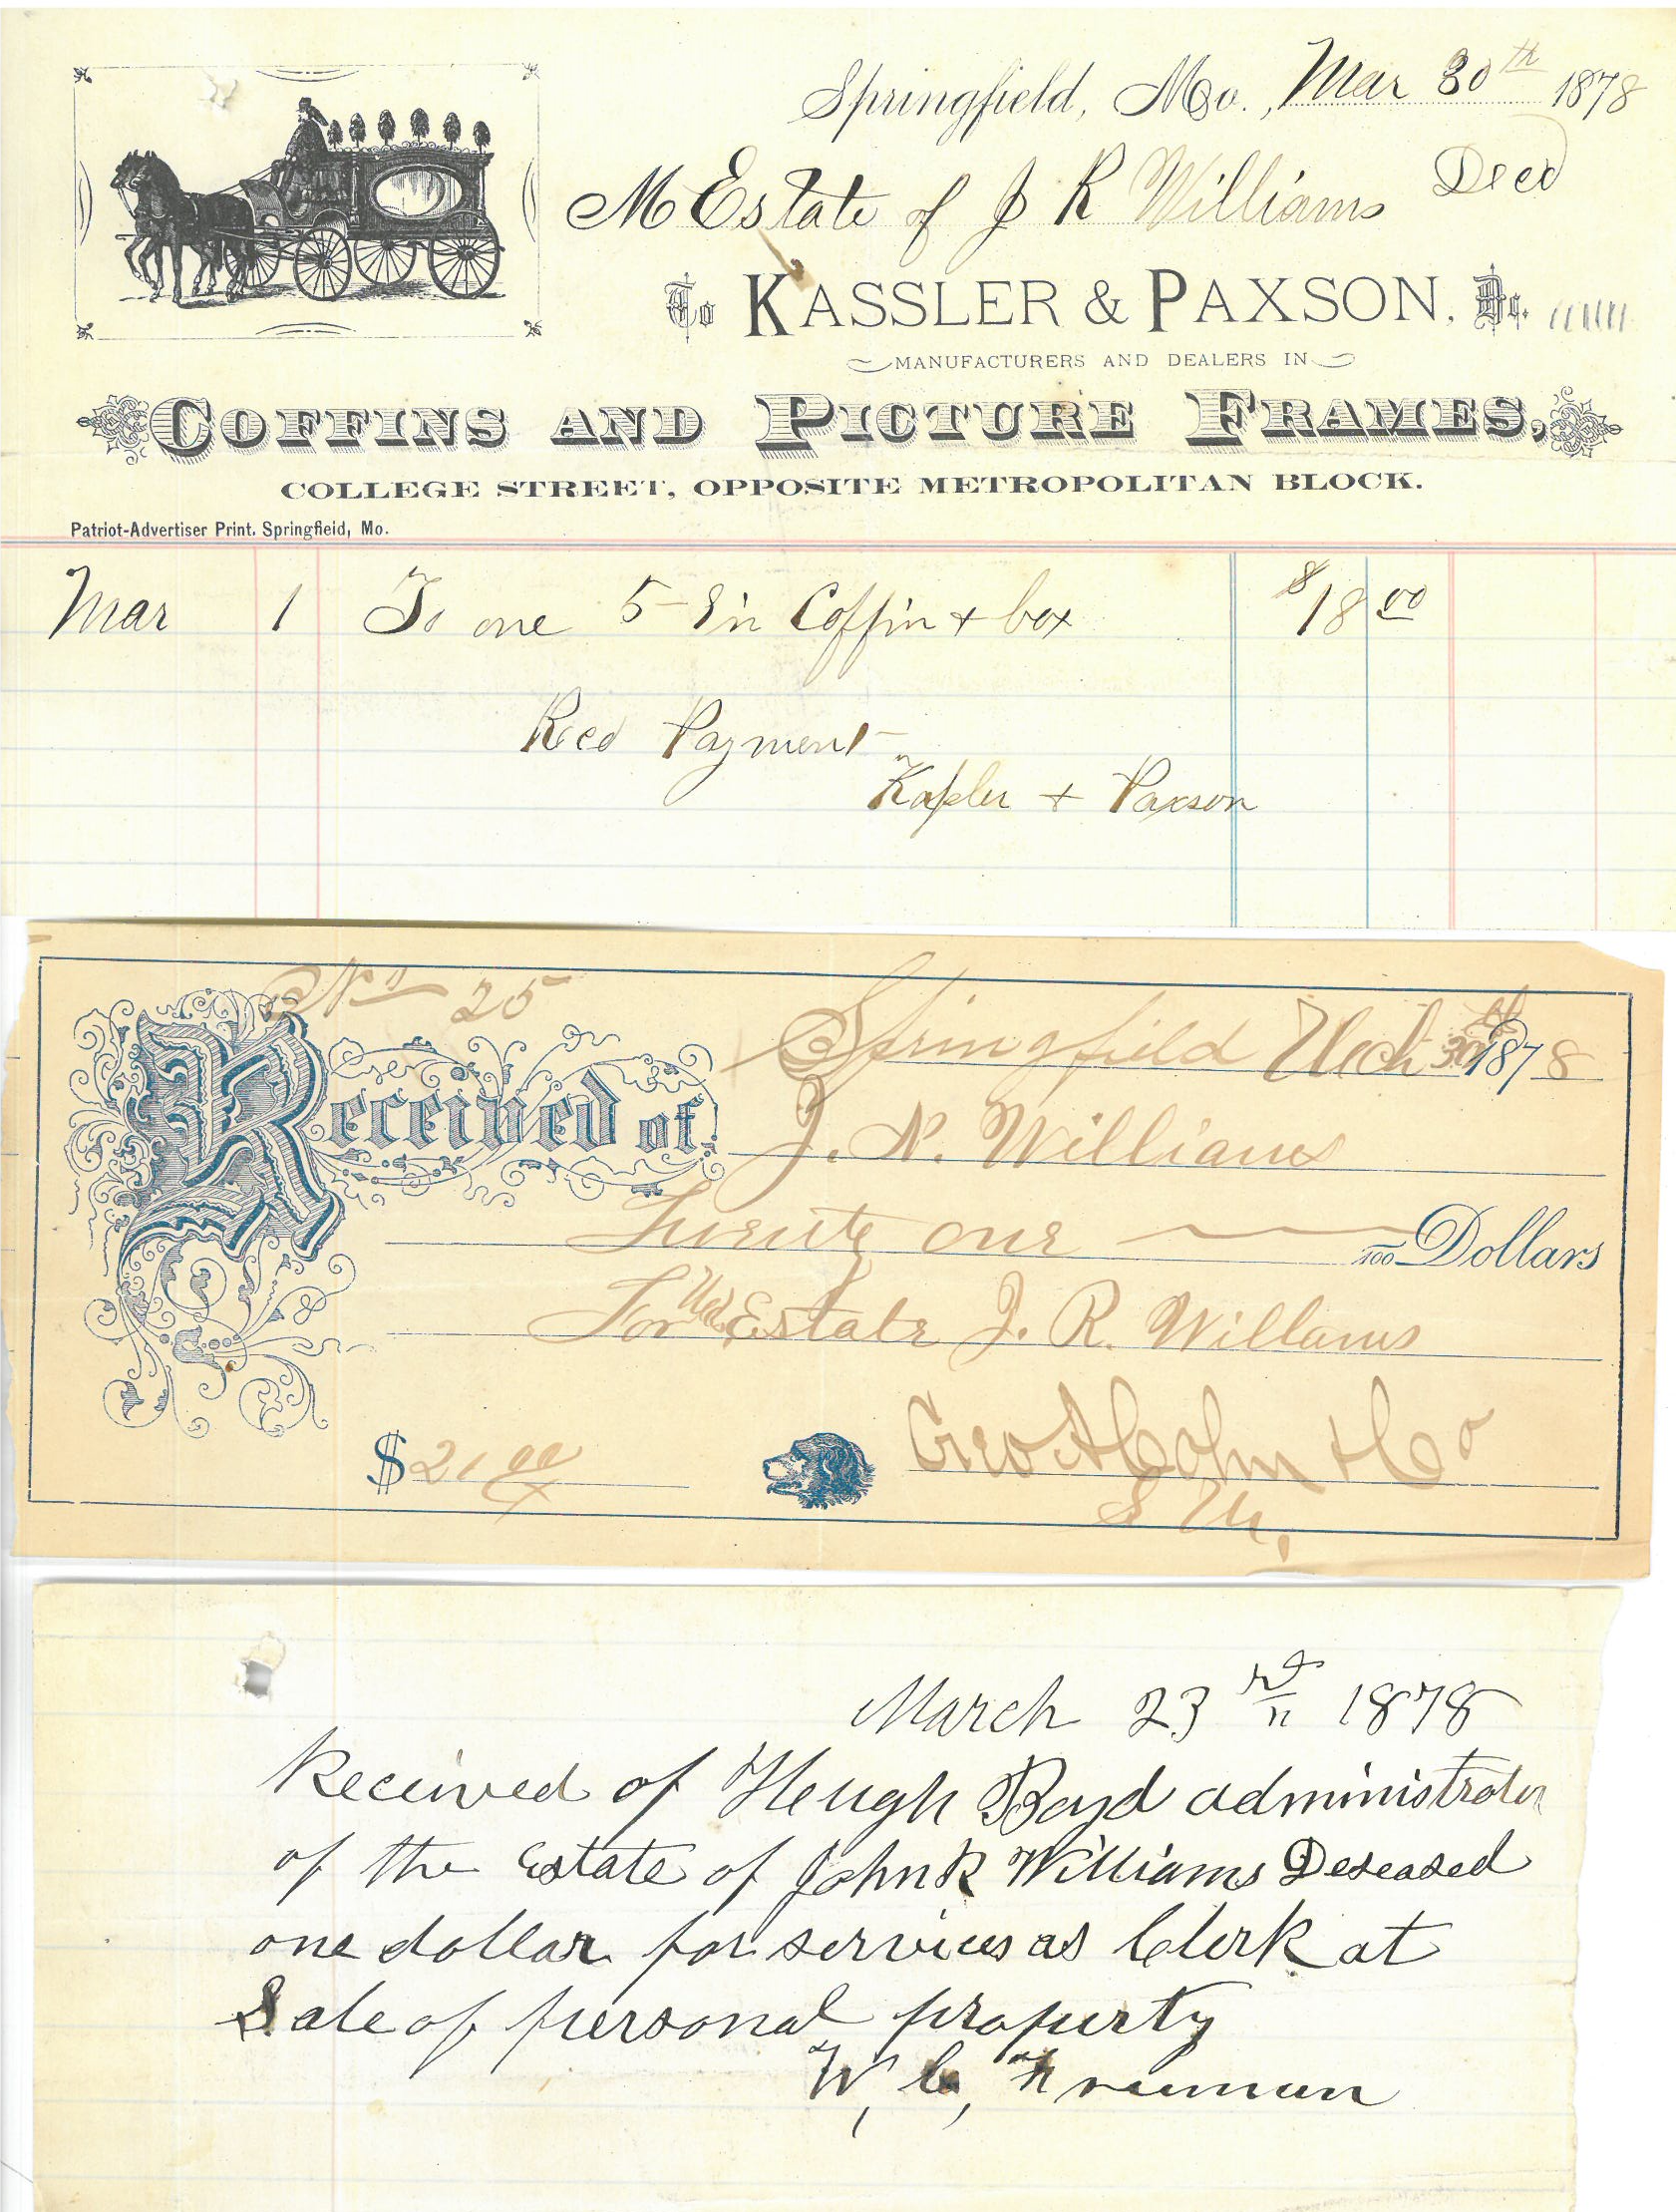 Springfield, Mo., Mar 30th 1878
M Estate of J R Williams Decd
To KASSLER & PAXSON, Dr.
MANUFACTURERS AND DEALERS IN
COFFINS AND PICTURE FRAMES,
COLLEGE STREET, OPPOSITE METROPOLITAN BLOCK.
Patriot-Advertiser Print. Springfield, Mo.
Mar 1 To one 5- in Coffin + box $18 00
Recd Payment
Kassler + Paxson
No 25
Springfield Mch 30th 1878
Received of J. N. Williams
Twenty one /100 Dollars
For Estate J. R. Willams
$21 00
Geo A & Co
March 23 rd 1878
Received of Heugh Boyd administrator
of the Estate of John R Williams Deseased
one dollar for services as Clerk at
Sale of personal property
W, C, Freeman